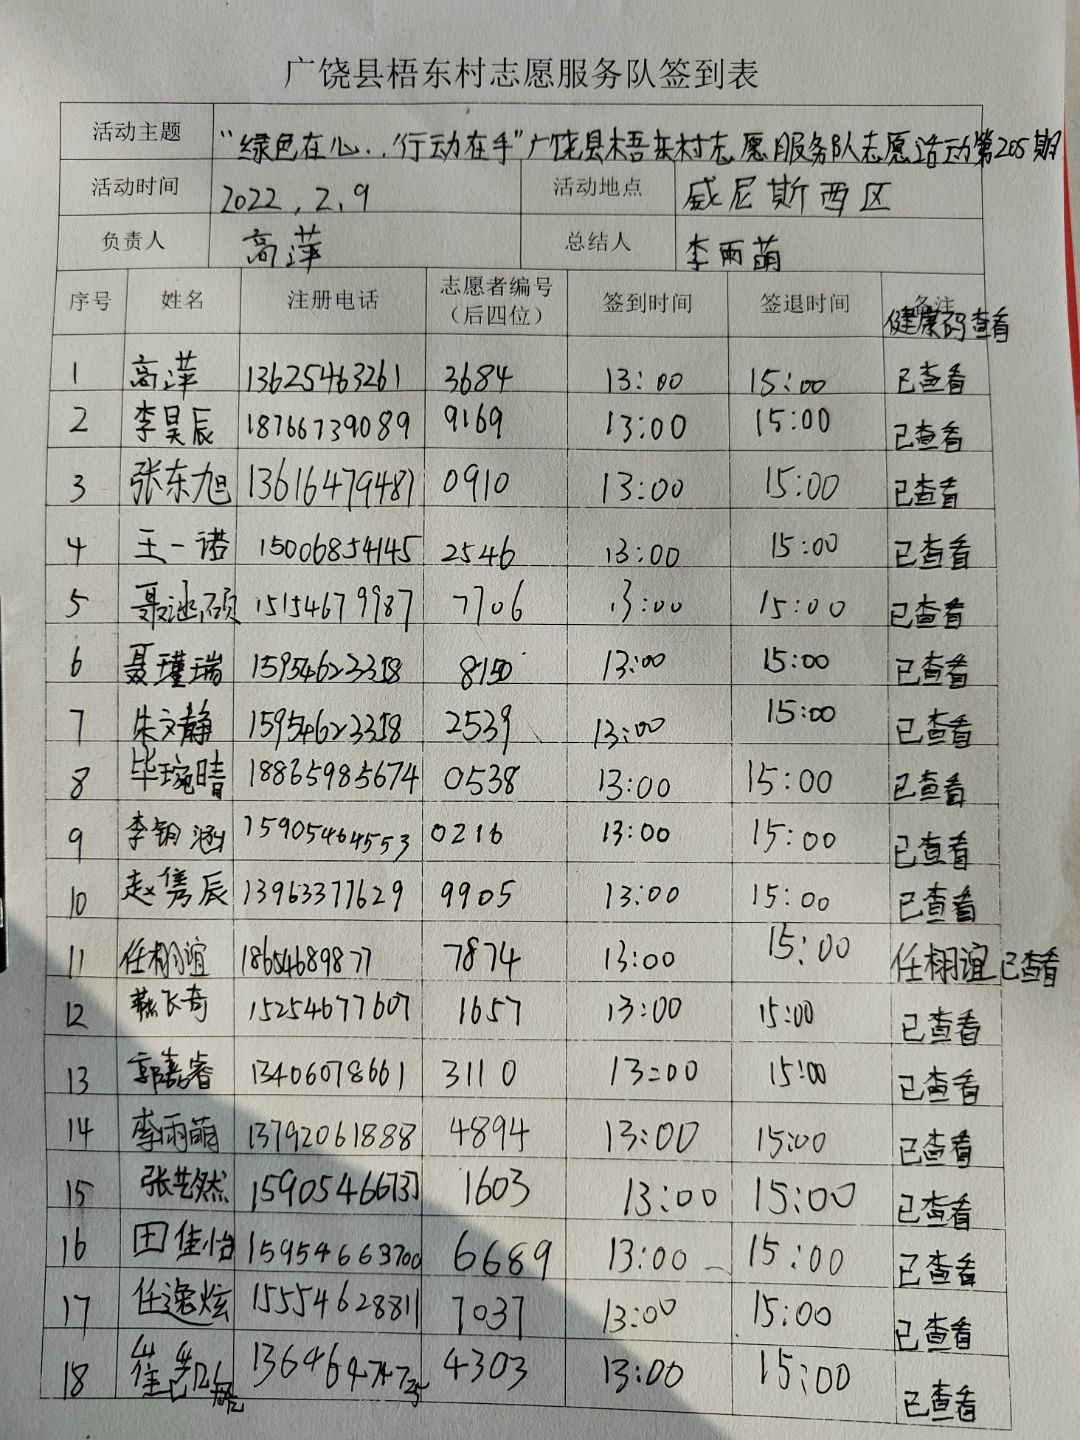 广饶县梧东村志愿服务队签到表
活动主题 “绿色在心,行动在手”广饶县梧东村志愿服务队志愿活动第205期
活动时间 2022.2.9 活动地点 威尼斯西区
负责人 高萍 总结人 李雨萌
序号 姓名 注册电话 志愿者编号（后四位） 签到时间 签退时间 备注 健康码查看
1 高萍 13625463261 3684 13:00 15:00 已查看
2 李昊辰 18766739089 9169 13:00 15:00 已查看
3 张东旭 13616479487 0910 13:00 15:00 已查看
4 王一诺 15006854145 2546 13:00 15:00 已查看
5 聂逊硕 15154679987 7706 13:00 15:00 已查看
6 聂瑾瑞 15954623358 8150 13:00 15:00 已查看
7 朱文静 15954623358 2539 13:00 15:00 已查看
8 毕琬晴 18865985674 0538 13:00 15:00 已查看
9 李钥涵 15905464553 0216 13:00 15:00 已查看
10 赵隽辰 13963377629 9905 13:00 15:00 已查看
11 任栩谊 18654689877 7874 13:00 15:00 任栩谊 已查看
12 飞奇 15254677607 1657 13:00 15:00 已查看
13 郭嘉睿 13406078661 3110 13:00 15:00 已查看
14 李雨萌 13792061888 4894 13:00 15:00 已查看
15 张艺然 1603 13:00 15:00 已查看
16 田佳怡 15954663700 6689 13:00 15:00 已查看
17 任逸炫 15554628811 7037 13:00 15:00 已查看
18 崔 4303 13:00 15:00 已查看